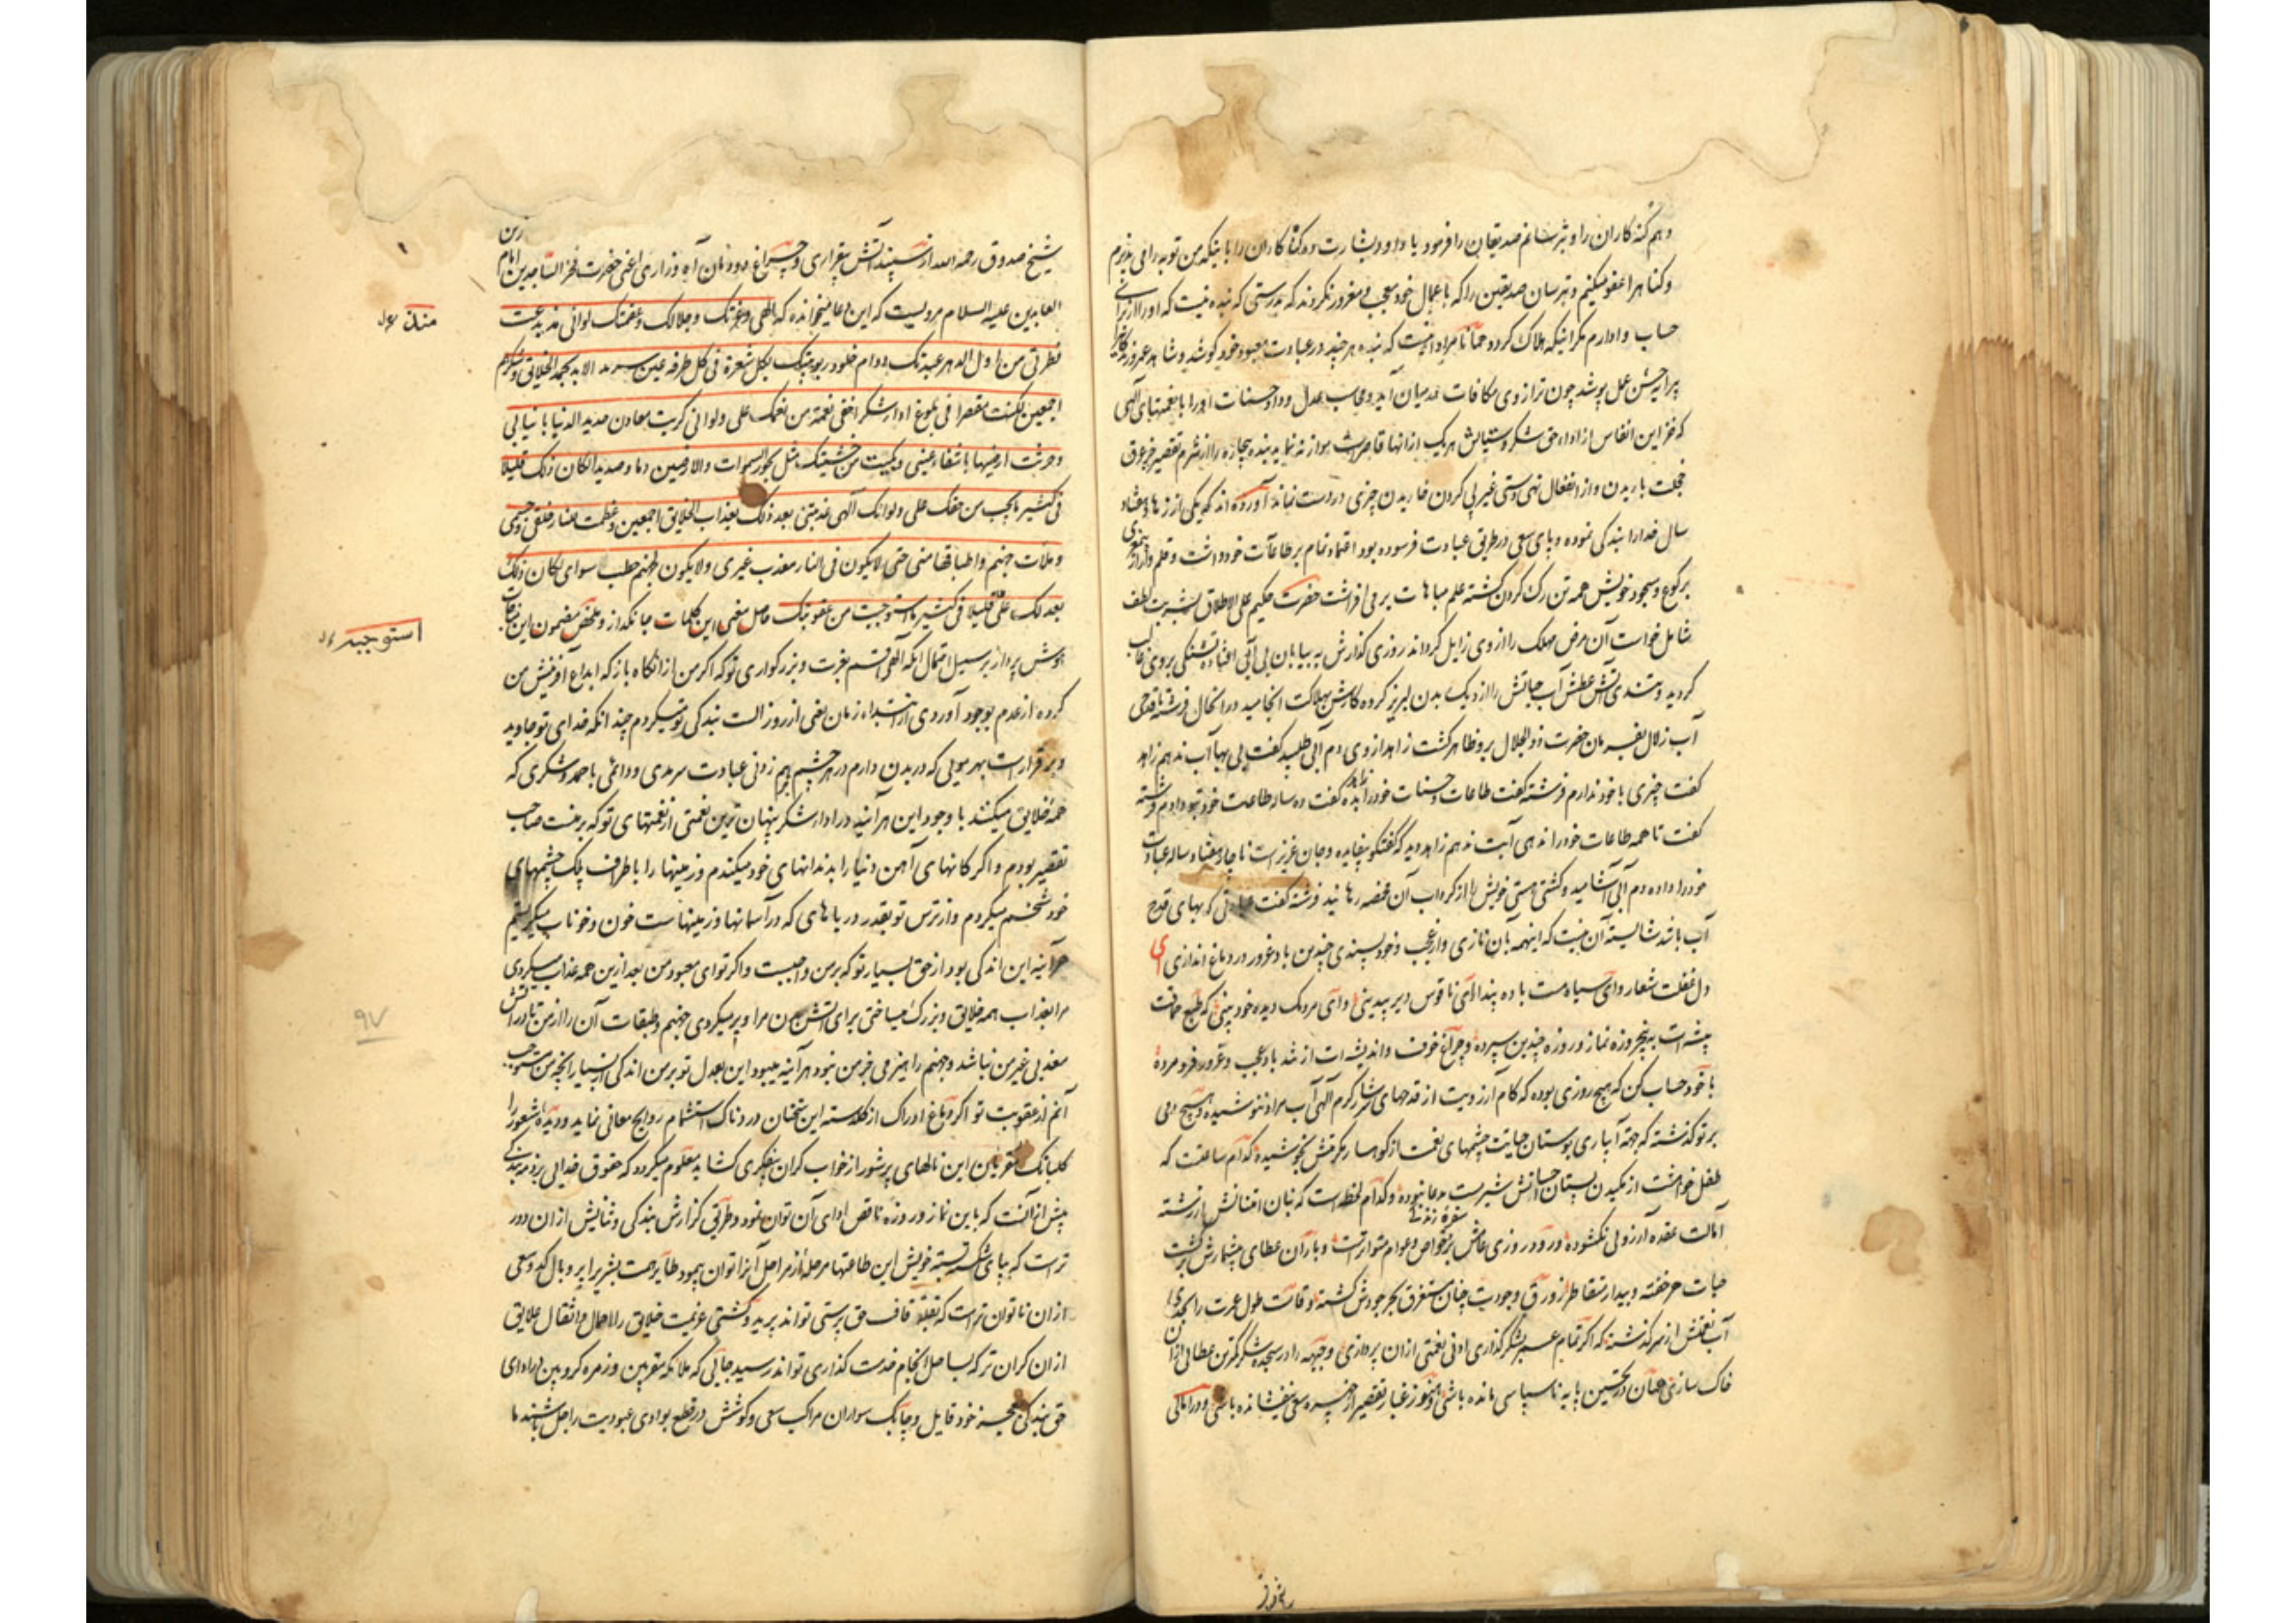 دهم کنه کاران را و بترسانم صدیقان را فرمود یا داود بشارت ده کناه کاران را باینکه من توبه را می پذیرم
و کناهرا عفو میکنم و بترسان صدیقین را که باعمال خود معجب و مغرور نکردند که بدرستی که بنده نیست که او را از برای
حساب وادارم مکر اینکه هلاک کردد همانا مراد اینست که بنده هر چند در عبادت معبود خود کوشد و شاهد عمر
پیرایه حسن عمل پوشد چون ترازوی مکافات در میان آید و محاسب عدل و داد حسنات او را با نعمتهای الهی
که خزاین انفاس از اداء حق شکر و ستایش هر یک از انها قاصر است موازنه نماید بنده بیچاره را از شرم تقصیر جز عرق
خجلت باریدن و از انفعال تهی دستی غیر لی کردن خاریدن چیزی در دست نماند آورده اند که یکی از زهاد هفتاد
سال خدا را بندکی نموده و پای سعی در طریق عبادت فرسوده بود اعتماد تمام بر طاعات خود داشت و قلم وار از
برکوع و سجود خویش همه تن رک کردن کشته علم مباهات بر می افراشت حضرت حکیم علی الاطلاق بشربت لطف
شامل خواست آن مرض مهلک را از وی زایل کرداند روزی کذارش به بیابان بی آبی افتاده تشنکی بر وی غالب
کردید و تندی آتش عطش آب حیاتش را از دیک بدن لبریز کرده کارش بهلاکت انجامید در انحال فرشته با قدحی
آب زلال بفرمان حضرت ذوالجلال بر و ظاهر کشت زاهد از وی دم آبی طلبید کفت بی بها آب ندهم زاهد
کفت چیزی با خود ندارم فرشته کفت طاعات و حسنات خود را بده زاهد کفت ده ساله طاعت خود بتو دادم فرشته
کفت تا همه طاعات خود را ندهی آبت ندهم زاهد دید که کفتکو بیفایده و جان عزیز است ناچار هفتاد ساله عبادت
خود را داده دم آبی آشامید و کشتی هستی خویش را از کرداب آن مخمصه رهانید فرشته کفت عبادتی که بهای قدح
آب باشد شایسته آن نیست که اینهمه بآن نازی و از عجب و خود پسندی چندین باد غرور در دماغ اندازی ای
دل غفلت شعار وای سیاه مست باده پندار ای ناقوس دیر بیدینی وای مردمک دیده خود بینی که طبع حماقت
پیشه ات به پنجروزه نماز و روزه چندین سپرده و چراغ خوف و اندیشه ات از تند باد عجب و غرور فرو مرده
با خود حساب کن که هیچ روزی بوده که کام آرزویت از قدحهای سرشار کرم الهی آب مراد ننوشیده و هیچ دمی
بر تو کذشته که جهته آبیاری بوستان حیاتت چشمهای نعمت از کوهسار مکرمتش نجوشیده کدام ساعت که
طفل خواهشت از مکیدن پستان احسانش شیر مست مدعا نبوده و کدام لحظه است که بنان افتانش از رشته
سفره زندکی
آمالت عقده آرزوئی نکشوده ورود روزی عامش بر خواص و عوام متواتر است و باران عطای بیشمارش بر کشت
حیات هر خفته و بیدار متقاطر زورق وجودت چنان مستغرق بحر جودش کشته و قامت طول عمرت را بحدی
آب نعمتش از سر کذشته که اکر تمام عمر بشکر کذاری ادنی نعمتی از ان پردازی و جبهه را در سجده شکر کمترین عطائی از ان
خاک سازی همان در نخستین پایه ناسپاسی مانده باشی و هنوز غبار تقصیر از چهره سعی نیفشانده باشی و در امالی
شیخ صدوق رحمه الله از سپند آتش بیقراری و چراغ دودمان آه و زاری اعنی حضرت فخر الساجدین امام زین
العابدین علیه السلام مرویست که این دعا میخوانده که الهی و عزتک و جلالک و عظمتک لو انی منذ بدعت
فطرتی من اول الدهر عبدتک دوام خلود ربوبیتک بکل شعرة فی کل طرفه عین سرمد الابد بحمد الخلایق و شکرهم
اجمعین لکنت مقصرا فی بلوغ اداء شکر اخفی نعمة من نعمک علی ولو انی کربت معادن حدید الدنیا بانیابی
و حرثت ارضیها باشفار عینی و بکیت من خشیتک مثل بحور السموات والارضین دما و صدیدا لکان ذلک قلیلا
فی کثیر ما یجب من حقک علی ولو انک الهی عذبتنی بعد ذلک بعذاب الخلایق اجمعین و عظمت للنار خلقی و جسمی
و ملأت جهنم و اطباقها منی حتی لا یکون فی النار معذب غیری ولا یکون لجهنم حطب سوای لکان ذلک
بعدلک علی قلیلا فی کثیر ما استوجبت من عقوبتک حاصل معنی این کلمات جانکداز و ملخص مضمون این مناجات
هوش پرداز بر سبیل اجمال آنکه الهی قسم بعزت و بزرکواری تو که اکر من از انکاه باز که ابداع آفرینش من
کرده از عدم بوجود آوردی از ابتداء زمان یعنی از روز الست بندکی تو میکردم چند انکه خدای تو جاوید
و بر قرار است بهر موئی که در بدن دارم در هر چشم بهم زدنی عبادت سرمدی و دائمی با حمد و شکری که
همه خلایق میکنند با وجود این هر آینه در اداء شکر پنهان ترین نعمتی از نعمتهای تو که بر منست صاحب
تقصیر بودم و اکر کانهای آهن دنیا را بدندانهای خود میکندم و زمینها را باطراف پلک چشمهای
خود شخم میکردم و از ترس تو بقدر دریاهای که در آسمانها و زمینهاست خون و خوناب میکریستم
هر آینه این اندکی بود از حق بسیار تو که بر من واجبست و اکر تو ای معبود من بعد ازین همه عذاب میکردی
مرا بعذاب همه خلایق و بزرک میساختی برای آتش تن مرا و پر میکردی جهنم و طبقات آن را از من تا در آتش
معذبی غیر من نباشد و جهنم را هیزمی جز من نبود هر آینه میبود این بعدل تو بر من اندکی از بسیار آنچه من مستوجب
آنم از عقوبت تو اکر دماغ ادراک از کلدسته این سخنان دردناک استشمام روایح معانی نماید و دیده شعور را
کلبانک این نالهای پر شور از خواب کران بیفکری کشاید معلوم میکردد که حقوق خدائی بر ذمه بندکی
بیش از آنست که باین نماز و روزه ناقص ادای آن توان نمود و طریق کزارش بندکی و ثنایش از ان دور
تر است که بپای شکسته بسته خویش این طاعتها مرحله از مراحل آنرا توان پیمود طایر همت بشر پر و بال کد و سعی
از ان ناتوان تر است که بقله قاف حق پرستی تواند پرید و کشتی عزیمت خلایق را احمال و اثقال علایق
از ان کران تر که بساحل انجام خدمت کذاری تواند رسید جائی که ملائکه مقربین و زمره کروبین در ادای
حق بندکی بعجز خود قایل و چابک سواران مراکب سعی و کوشش در قطع بوادی عبودیت راجل باشند ما
استوجبته
۹۷